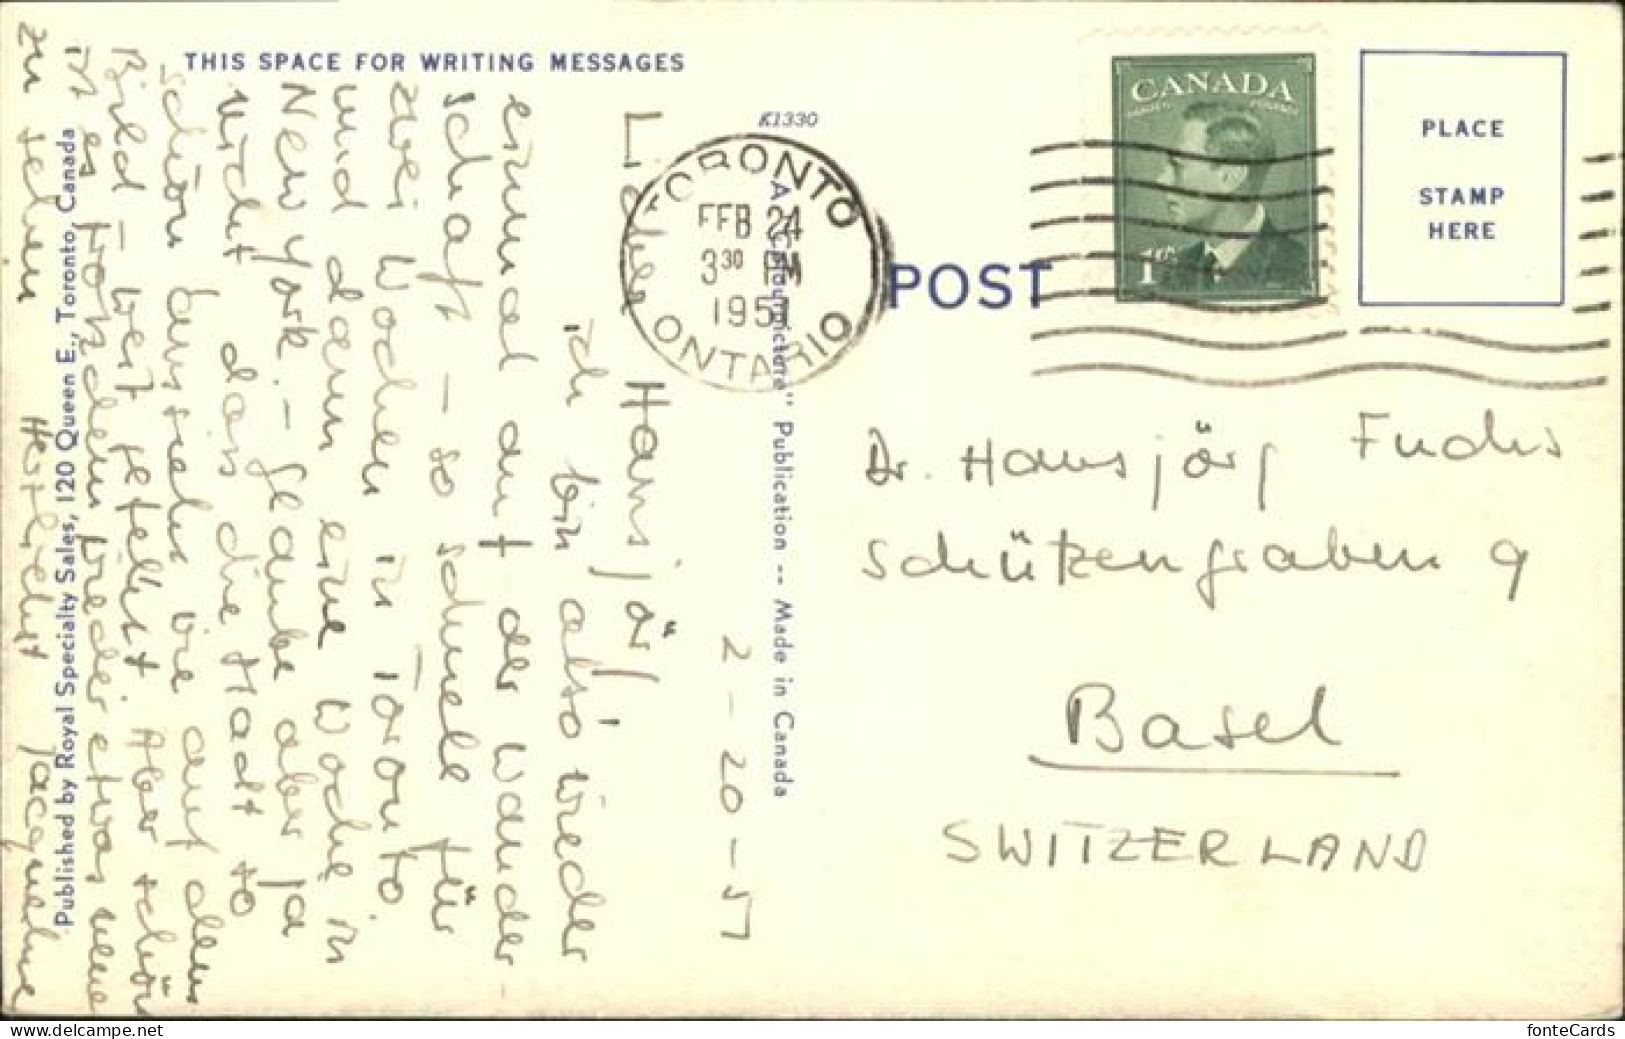 THIS SPACE FOR WRITING MESSAGES
K1330
2-20-57
Lieber Hansjörg
ich bin also wieder
einmal auf der Wander-
schaft - so schnell für
zwei Wochen in Toronto
und dann eine Woche in
New York. - glaube aber ja
nicht dass die Stadt so
schön aussieht wie auf dem
Bild - weit gefehlt. Aber schön
ist es trotzdem wieder etwas neues
zu sehen. Herzlichst Jacqueline
Published by Royal Specialty Sales, 120 Queen E., Toronto, Canada
Publication -- Made in Canada
TORONTO
FEB 24
3 30 PM
1957
ONTARIO
POST
CANADA
POSTES POSTAGE
1c
PLACE
STAMP
HERE
Dr. Hansjörg Fuchs
Schützengraben 9
Basel
SWITZERLAND
fonteCards